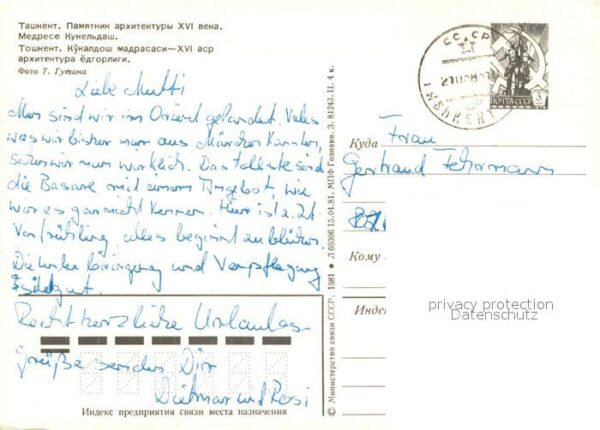 Ташкент. Памятник архитектуры XVI века.
Медресе Кукельдаш.
Тошкент. Кўкалдош мадрасаси—XVI аср
архитектура ёдгорлиги.
Фото Т. Гутина
Liebe Mutti
Nun sind wir im Orient gelandet. Vieles
was wir bisher nur aus Märchen kannten,
sehen wir nun wirklich. Das tollste sind
die Basare mit einem Angebot, wie
wir es gar nicht kennen. Hier ist z. Zt.
Vorfrühling, alles beginnt zu blühen.
Die Unterbringung und Verpflegung
ist gut.
Recht herzliche Urlaubs-
grüße senden Dir
Dietmar und Rosi
Индекс предприятия связи места назначения
© Министерство связи СССР. 1981 • Л 60396 15.04.81. МПФ Гознака. З. 81243. Ц. 4 к.
СССР
TASHKENT
ПОЧТА СССР
Куда Frau
Gertraud
Кому
Индекс
privacy protection
Datenschutz